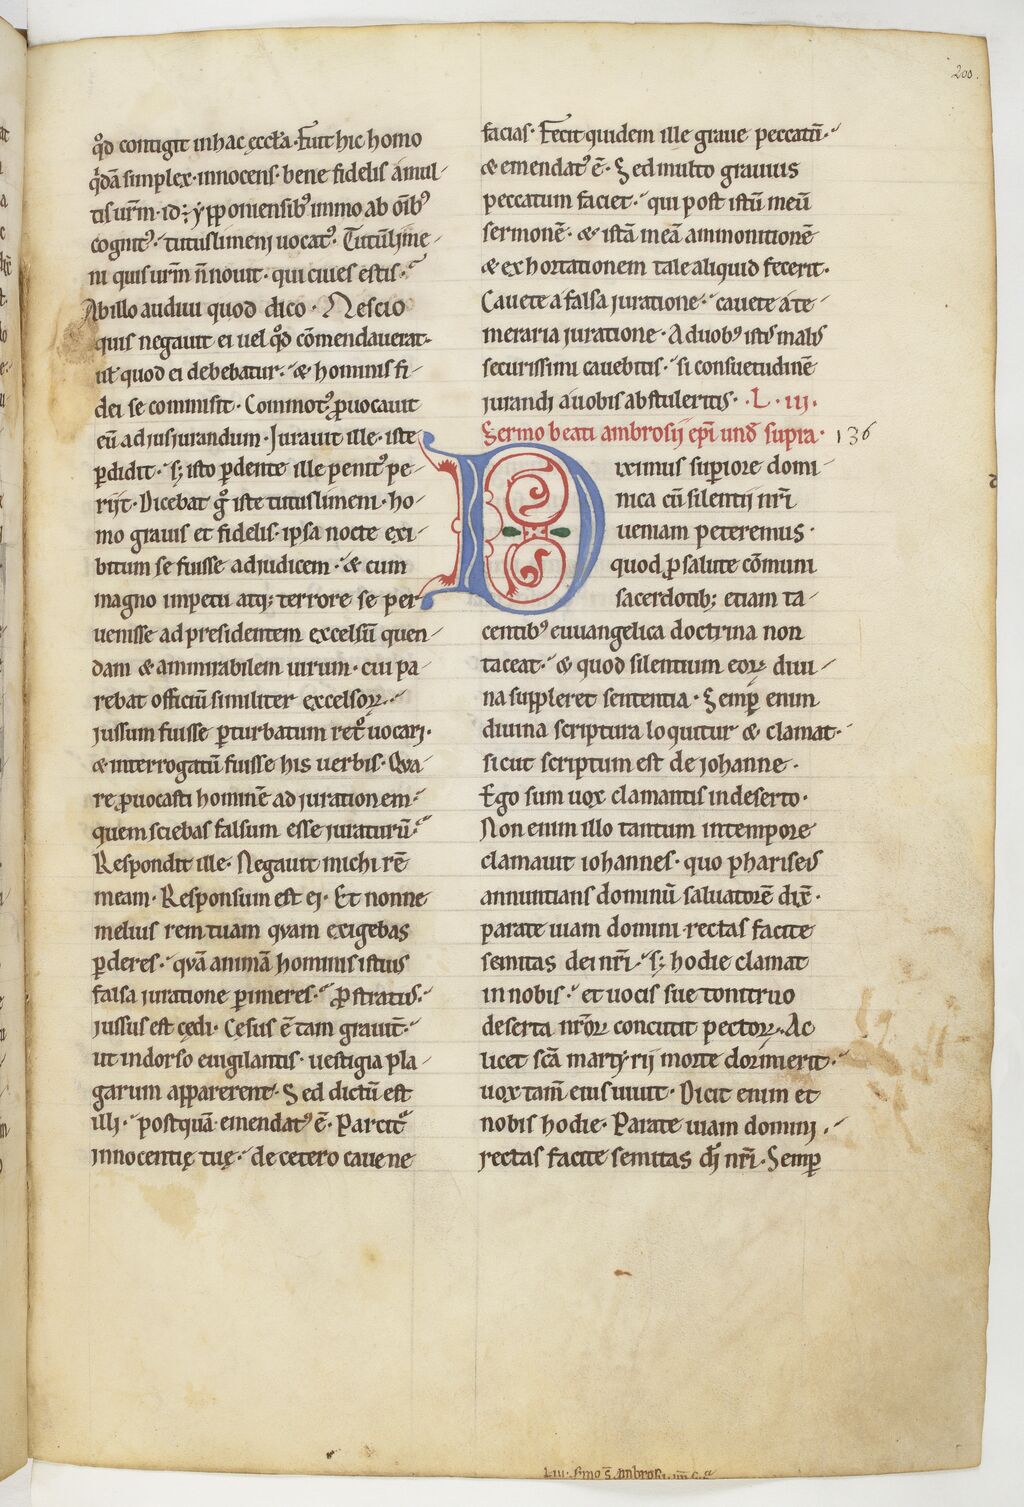 200.
qd contigit in hac ęccła. Fuit hic homo
qdā simplex. innocens. bene fidelis a mul-
tis urm. id ÷ ypponiensibꝰ immo ab oībꝰ
cognitꝰ. tutuslimeni uocatꝰ. Tutūlime-
ni quis urm n̄ nouit. qui ciues estis.
Ab illo audiui quod dico. Nescio
quis negauit ei uel qd cōmendauerat.
ut quod ei debebatur. & hominis fi-
dei se commisit. Commotꝰ ꝓuocauit
eū ad jusjurandum. Jurauit ille. iste
ꝑdidit. sꝫ isto ꝑdente ille penitꝰ pe-
rijt. Dicebat gͦ iste tutuslimeni. ho-
mo grauis et fidelis. ipsa nocte exi-
bitum se fuisse ad judicem. & cum
magno impetu atqꝫ terrore se per
uenisse ad presidentem excelsū quen-
dam & ammirabilem uirum. cui pa-
rebat officiū similiter excelsoꝝ.
jussum fuisse ꝑturbatum retͦ uocarj.
& interrogatū fuisse his uerbis. Qua-
re ꝓuocasti hominē ad jurationem.
quem sciebas falsum esse juraturū.
Respondit ille. Negauit michi rē
meam. Responsum est ej. Et nonne
melius rem tuam quam exigebas
ꝑderes. quā animā hominis istius
falsa juratione ꝑimeres. Ꝓstratus.
jussus est cędi. Cęsus ē tam grauit̄.
ut in dorso euigilantis. uestigia pla-
garum apparerent. Sed dictū est
illi. postquā emendatꝰ ē. Parcit᷑
innocentię tuę. de cetero caue ne
facias. Fecit quidem ille graue peccatū.
& emendatꝰ ē. Sed multo grauius
peccatum faciet. qui post istū meū
sermonē. & istā meā ammonitionē
& exhortationem tale aliquid fecerit.
Cauete a falsa juratione. cauete a te-
meraria juratione. A duobꝰ istis malis
securissimi cauebitis. si consuetudinē
jurandi a uobis abstuleritis. .L. iii.
Sermo beati ambrosij ep̄i und̄ supra. 136
Diximus supiore domi-
nica cū silentij nr̄i
ueniam peteremus.
quod ꝓ salute cōmuni
sacerdotibꝫ etiam ta-
centibꝰ euuangelica doctrina non
taceat. & quod silentium eoꝝ diui-
na suppleret sententia. Semꝑ enim
diuina scriptura loquitur & clamat.
sicut scriptum est de johanne.
Ego sum uox clamantis in deserto.
Non enim illo tantum in tempore
clamauit iohannes. quo phariseis
annuntians dominū saluatorē dix̄.
parate uiam domini rectas facite
semitas dei nr̄i. sꝫ hodie clamat
in nobis. et uocis sue tonitruo
deserta nr̄oꝝ concutit pectoꝝ. Ac
licet scā martyrij morte dormierit.
uox tam̄ eius uiuit. Dicit enim et
nobis hodie. Parate uiam domini.
rectas facite semitas dj̄ nr̄i. Semꝑ